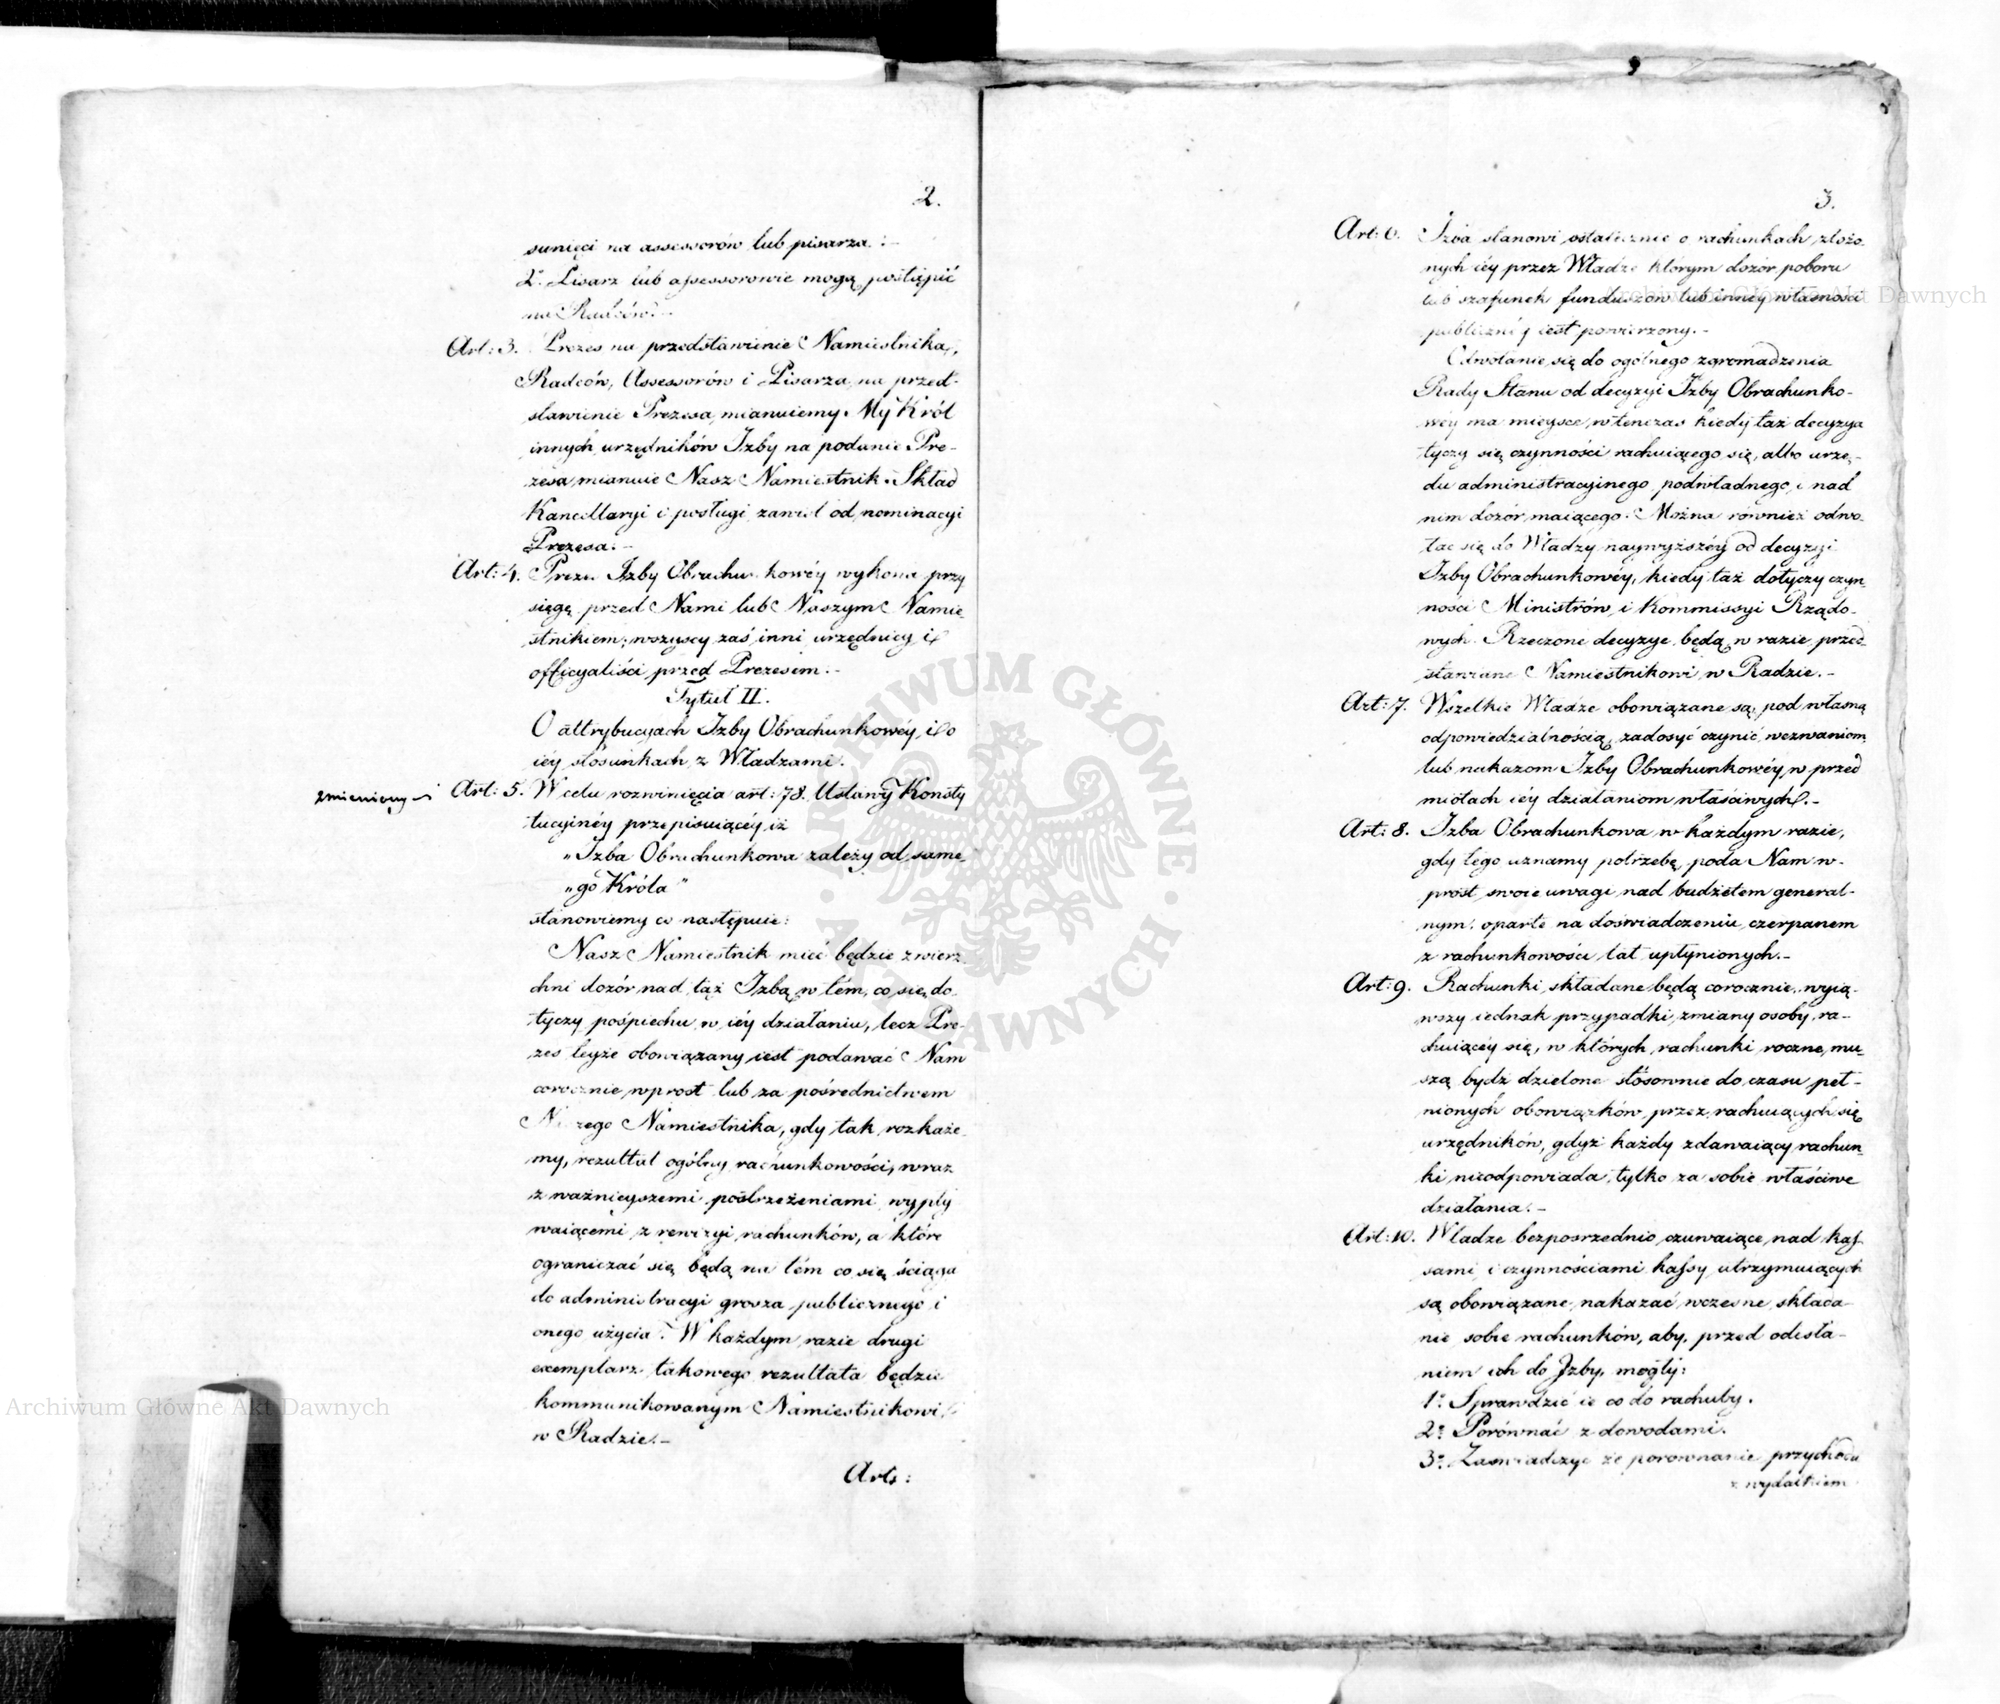 2.
sunięci na assessorów lub pisarza. :-
2° Pisarz lub assessorowie mogą postąpić
na Radców. -
Art: 3. Prezes na przedstawienie Namiestnika,
Radców, Assessorów i Pisarza, na przed-
stawienie Prezesa, mianuiemy My Król
innych urzędników Izby na podanie Pre-
zesa mianuie Nasz Namiestnik. Skład
Kancellaryi i posługi zawisł od nominacyi
Prezesa. -
Art: 4. Prezes Izby Obrachunkowéy wykona przy
sięgę przed Nami lub Naszym Namie-
stnikiem; wszyscy zaś inni urzędnicy i
officyaliści przed Prezesem. -
Tytuł II.
O attrybucyach Izby Obrachunkowéy, i o
iéy stosunkach z Władzami.
zmieniony
Art: 5. W celu rozwinięcia art: 78. Ustawy Konsty
tucyinéy przepisuiącéy iż
„Izba Obrachunkowa zależy od same
„go Króla"
stanowiemy co następuie:
Nasz Namiestnik mieć będzie zwierz
chni dozór nad taż Izbą w tém, co się do-
tyczy pośpiechu w iéy działaniu, lecz Pre-
zes teyże obowiązany iest podawać Nam
corocznie wprost lub za pośrednictwem
Naszego Namiestnika, gdy tak rozkaże-
my, rezultat ogólny rachunkowości, wraz
z ważnieyszemi postrzeżeniami wypły
waiącemi z rewizyi rachunków, a które
ograniczać się będą na tém co się ściąga
do administracyi grosza publicznego i
onego użycia. W każdym razie drugi
exemplarz takowego rezultata będzie
kommunikowanym Namiestnikowi
w Radzie. -
Art:
3.
Art: 6. Izba stanowi ostatecznie o rachunkach złożo-
nych iéy przez Władze którym dozór poboru
lub szafunek funduszów lub inney własności
publicznéj iest powierzony. -
Odwołanie się do ogólnego zgromadzenia
Rady Stanu od decyzyi Izby Obrachunko-
wéy ma mieysce, wtenczas kiedy taż decyzya
tyczy się czynności rachuiącego się, albo urzę-
du administracyinego podwładnego, i nad
nim dozór maiącego. Można również odwo-
łać się do Władzy naywyższéy od decyzyi
Izby Obrachunkowéy, kiedy taż dotyczy czyn-
ności Ministrów i Kommissyi Rządo-
wych. Rzeczone decyzye będą w razie przed-
stawiane Namiestnikowi w Radzie. -
Art: 7. Wszelkie Władze obowiązane są, pod własną
odpowiedzialnością, zadosyć czynić wezwaniom
lub nakazom Izby Obrachunkowéy w przed
miotach iéy działaniom właściwych. -
Art: 8. Izba Obrachunkowa w każdym razie,
gdy tego uznamy potrzebę, poda Nam w-
prost swoie uwagi nad budżetem general-
nym, oparte na doświadczeniu czerpanem
z rachunkowości lat upłynionych. -
Art: 9. Rachunki składane będą corocznie, wyią-
wszy iednak przypadki zmiany osoby, ra-
chuiącéy się, w których rachunki roczne mu-
szą bydź dzielone stósownie do czasu peł-
nionych obowiązków przez rachuiących się
urzędników, gdyż każdy zdawaiący rachun-
ki nieodpowiada, tylko za sobie właściwe
działania. -
Art: 10. Władze bezposrzednio czuwaiące nad kas-
sami i czynnościami kassy utrzymuiących
są obowiązane nakazać wczesne składa-
nie sobie rachunków, aby, przed odesła-
niem ich do Izby, mogły:
1° Sprawdzić ie co do rachuby.
2° Porównać z dowodami.
3° Zaświadczyć że porownanie przychodu
z wydatkiem
Archiwum Główne Akt Dawnych
Archiwum Główne Akt Dawnych
ARCHIWUM GŁÓWNE · AKT DAWNYCH ·